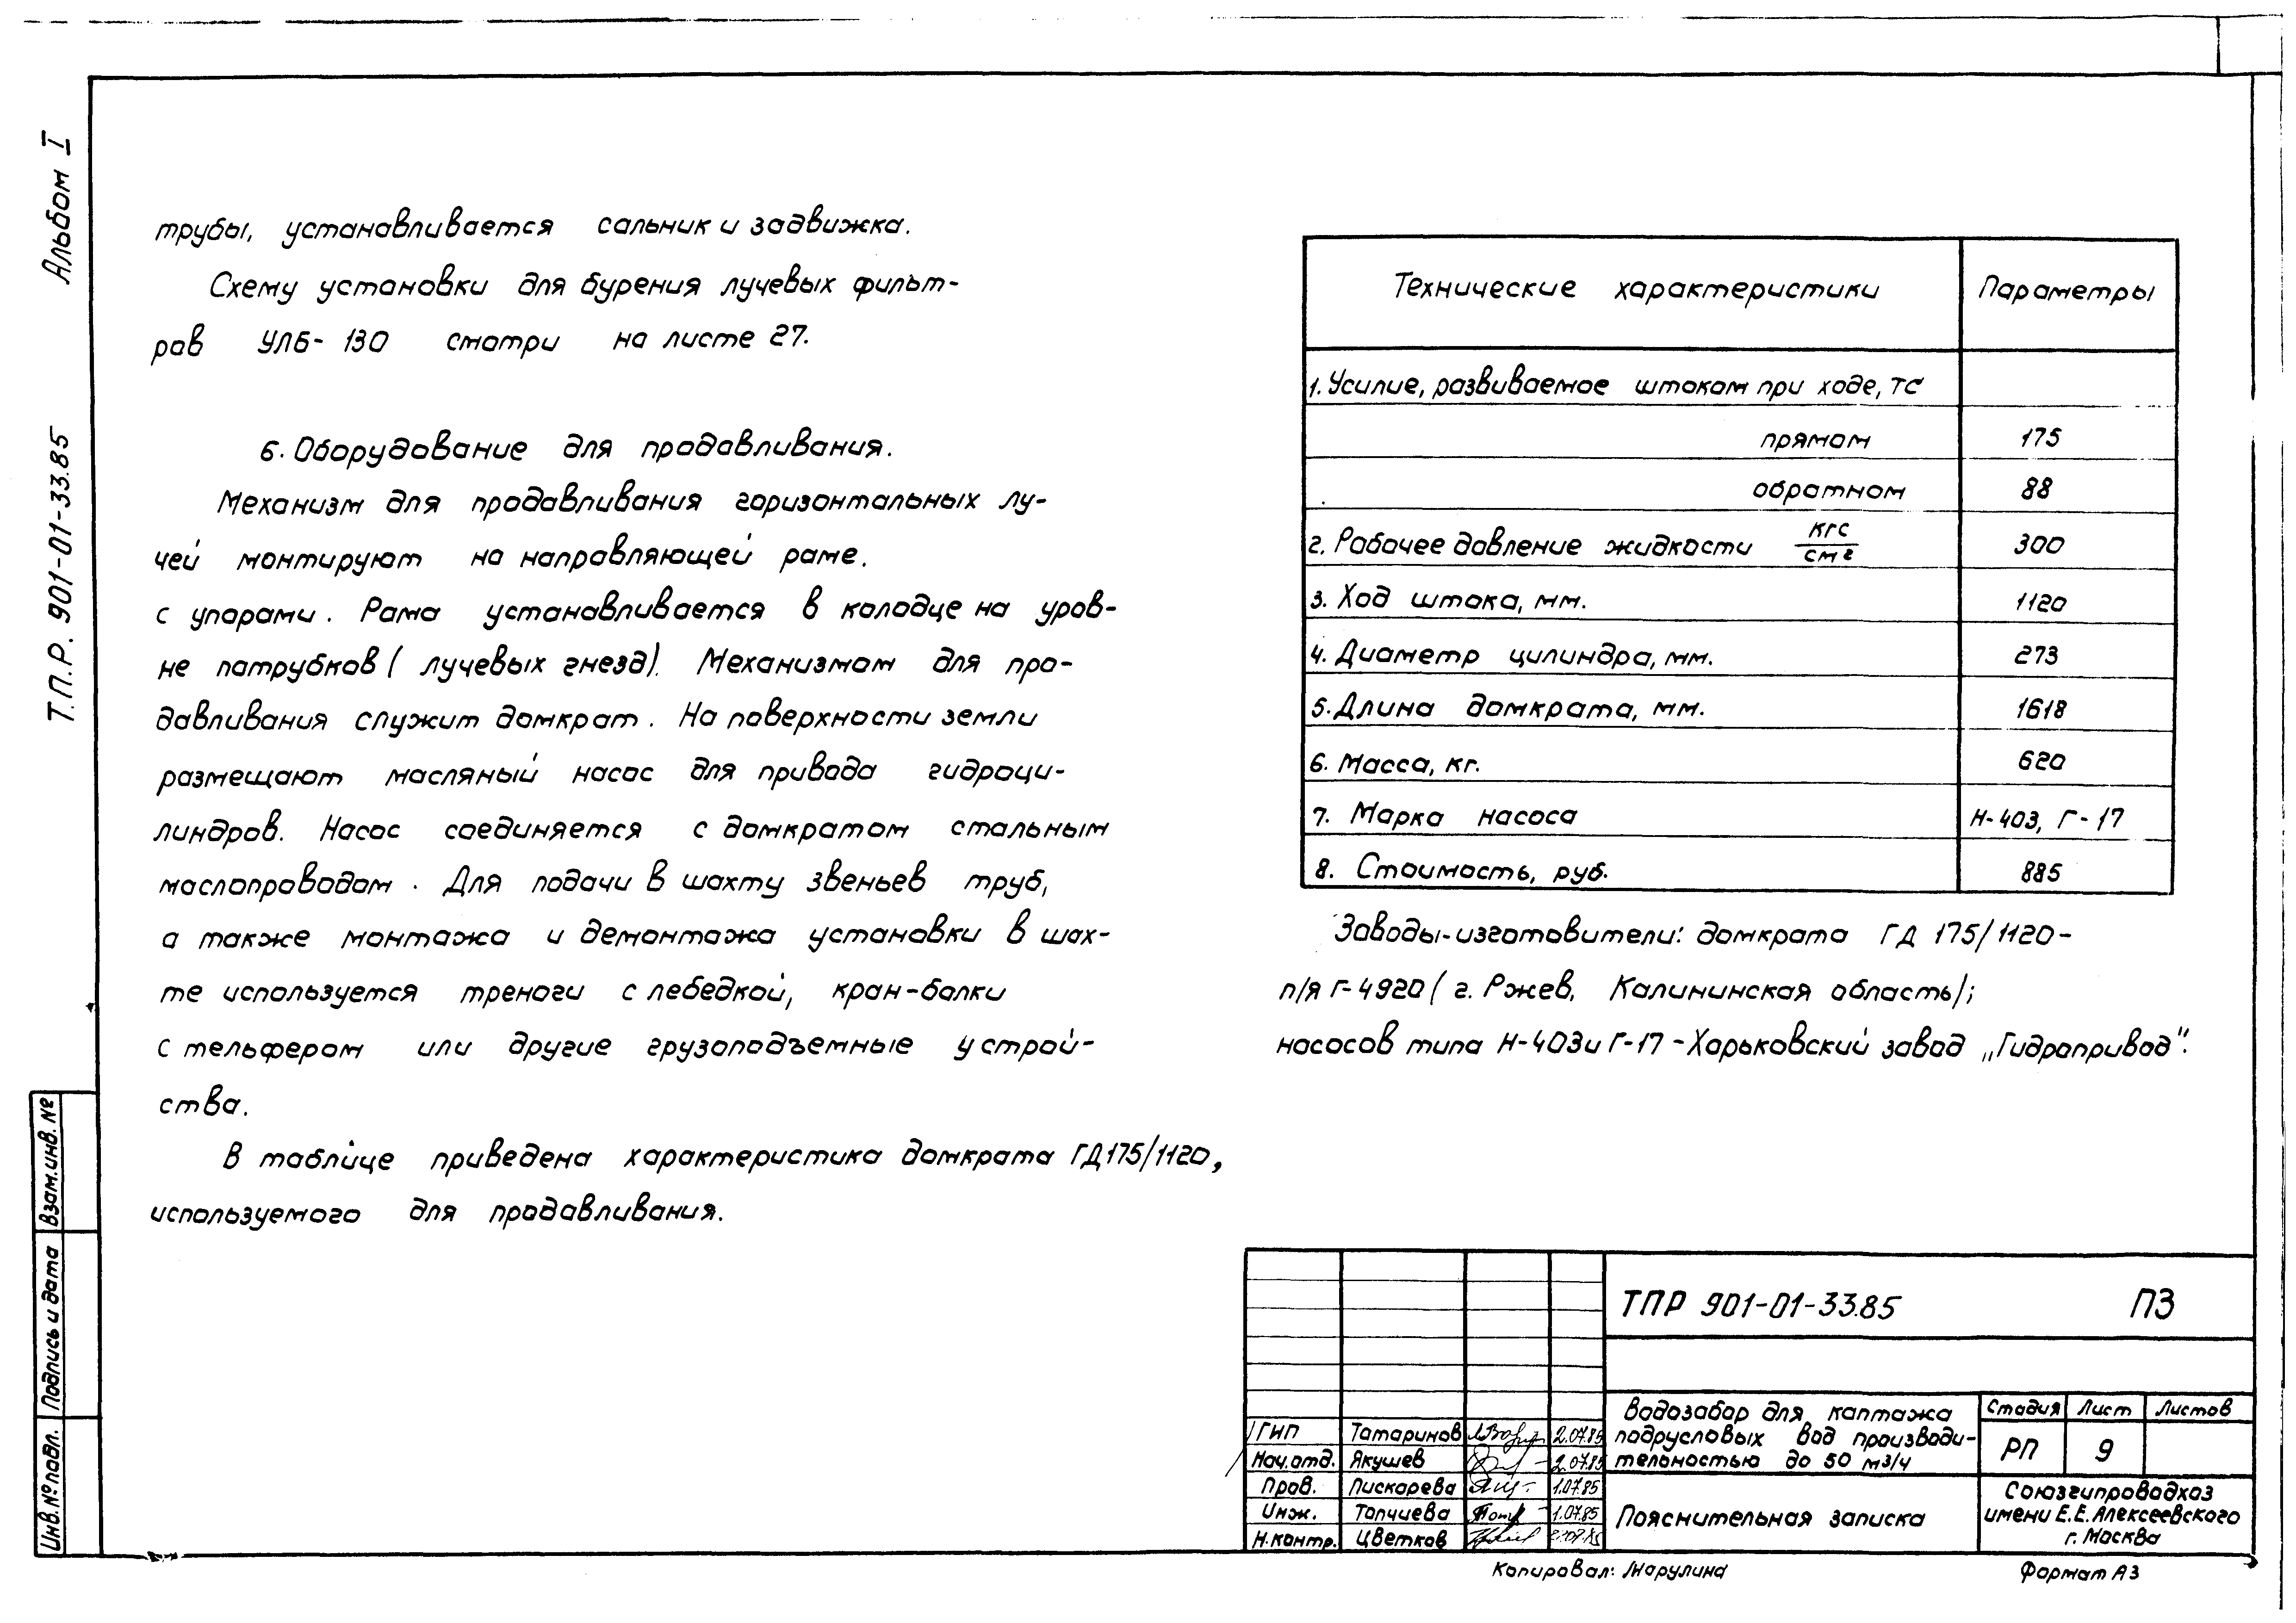 Альбом I
Т.П.Р. 901-01-33.85
трубы, устанавливается сальник и задвижка.
Схему установки для бурения лучевых фильт-
ров УЛБ-130 смотри на листе 27.
6. Оборудование для продавливания.
Механизм для продавливания горизонтальных лу-
чей монтируют на направляющей раме.
с упорами. Рама устанавливается в колодце на уров-
не патрубков (лучевых гнезд). Механизмом для про-
давливания служит домкрат. На поверхности земли
размещают масляный насос для привода гидроци-
линдров. Насос соединяется с домкратом стальным
маслопроводом. Для подачи в шахту звеньев труб,
а также монтажа и демонтажа установки в шах-
те используется треноги с лебедкой, кран-балки
с тельфером или другие грузоподъемные устрой-
ства.
В таблице приведена характеристика домкрата ГД175/1120,
используемого для продавливания.
Технические характеристики Параметры
1. Усилие, развиваемое штоком при ходе, тс
прямом 175
обратном 88
2. Рабочее давление жидкости кгс/см² 300
3. Ход штока, мм. 1120
4. Диаметр цилиндра, мм. 273
5. Длина домкрата, мм. 1618
6. Масса, кг. 620
7. Марка насоса Н-403, Г-17
8. Стоимость, руб. 885
Заводы-изготовители: домкрата ГД 175/1120-
п/я Г-4920 (г. Ржев, Калининская область);
насосов типа Н-403 и Г-17 - Харьковский завод „Гидропривод".
Взам.инв.№
Подпись и дата
Инв.№подл.
ТПР 901-01-33.85 ПЗ
Водозабор для каптажа
подрусловых вод производи-
тельностью до 50 м3/ч
Стадия Лист Листов
РП 9
ГИП Татаринов 2.07.85
Нач.отд. Якушев 2.07.85
Пров. Пискарева 1.07.85
Инж. Топчиева 1.07.85
Н.контр. Цветков
Пояснительная записка
Союзгипроводхоз
имени Е.Е.Алексеевского
г. Москва
Копировал: Марулина
Формат А3